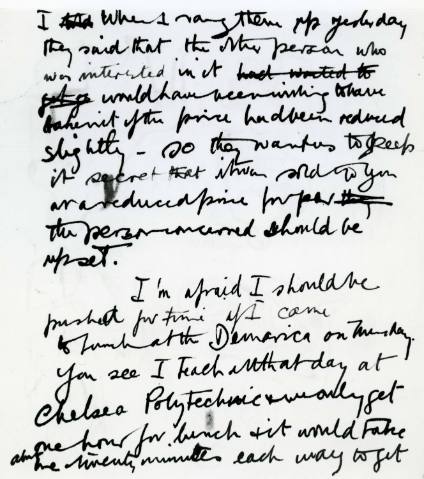 I When I rang them up yesterday
they said that the other person who
was interested in it had wanted to
would have been willing to have
taken it if the price had been reduced
slightly – so they want us to keep
it secret that it was sold to you
at a reduced price for
the person concerned should be
upset.
I'm afraid I should be
pushed for time if I came
to lunch at the on Tuesday.
You see I teach all that day at
Chelsea Polytechnic & we only get
one hour for lunch & it would take
me twenty minutes each way to get